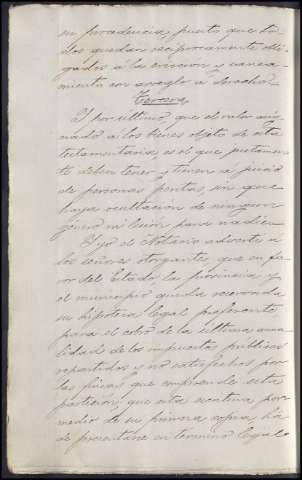 su procedencia, puesto que to-
dos quedan recíprocamente obli-
gados á la evicción y sanea-
miento con arreglo á derecho.
Tercera
Y por último, que el valor asig-
nado a los bienes objeto de esta
testamentaria, es el que justamen-
te deben tener y tienen á juicio
de personas peritas, sin que
haya ocultación de ningun
género ni lesión para nadie.
Y yo el Notario advierto a
los señores otorgantes, que en fa-
vor del Estado, la provincia y
el municipio queda reservada
su hipoteca legal preferente,
para el cobro de la última anua-
lidad de los impuestos públicos
repartidos y no satisfechos por
las fincas que comprende esta
partición, que esta escritura por
medio de su primera copia, ha
de presentarse en termino legal